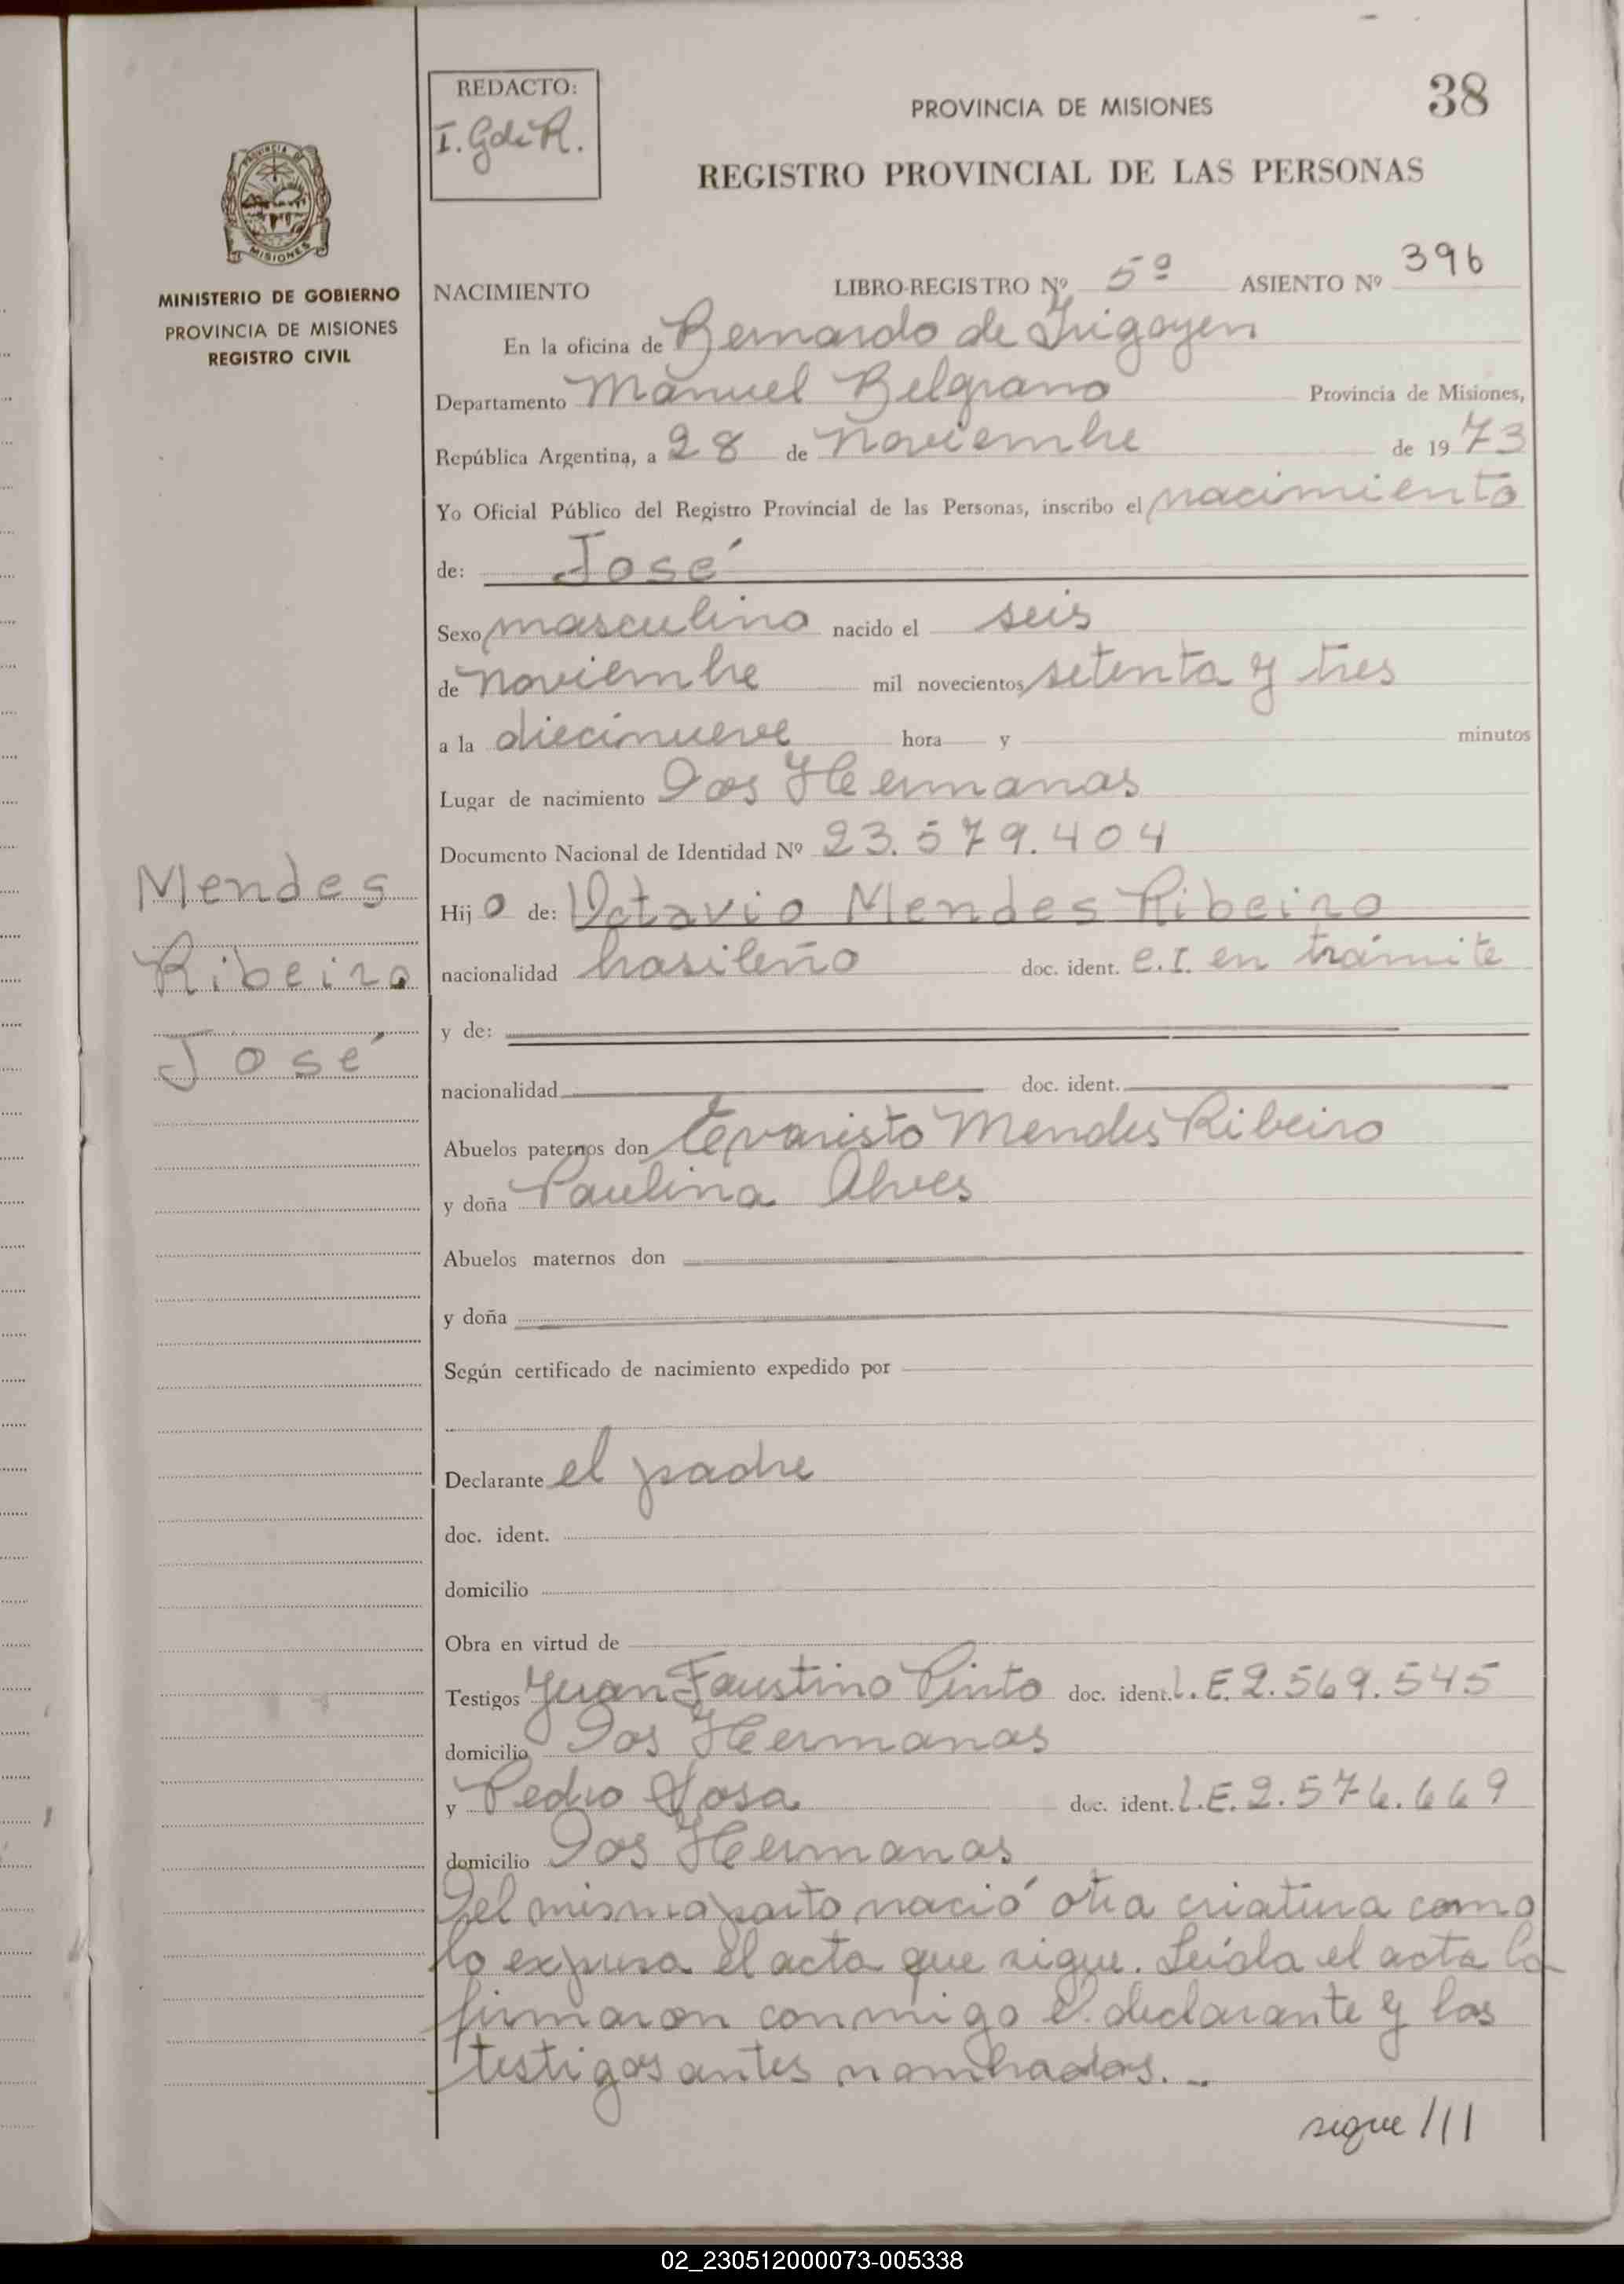 REDACTO:
I. G de R.
PROVINCIA DE MISIONES
38
REGISTRO PROVINCIAL DE LAS PERSONAS
MISIONES
MINISTERIO DE GOBIERNO
PROVINCIA DE MISIONES
REGISTRO CIVIL
NACIMIENTO LIBRO-REGISTRO Nº 5º ASIENTO Nº 396
En la oficina de Bernardo de Irigoyen
Departamento Manuel Belgrano Provincia de Misiones,
República Argentina, a 28 de noviembre de 1973
Yo Oficial Público del Registro Provincial de las Personas, inscribo el nacimiento
de: José
Sexo masculino nacido el seis
de noviembre mil novecientos setenta y tres
a la diecinueve hora y minutos
Lugar de nacimiento Dos Hermanas
Documento Nacional de Identidad Nº 23.579.404
Mendes
Ribeiro
José
Hijo de: Octavio Mendes Ribeiro
nacionalidad brasileño doc. ident. C.I. en trámite
y de:
nacionalidad doc. ident.
Abuelos paternos don Evaristo Mendes Ribeiro
y doña Paulina Alves
Abuelos maternos don
y doña
Según certificado de nacimiento expedido por
Declarante el padre
doc. ident.
domicilio
Obra en virtud de
Testigos Juan Faustino Pinto doc. ident. L.E. 2.569.545
domicilio Dos Hermanas
y Pedro Sosa doc. ident. L.E. 2.576.669
domicilio Dos Hermanas
Del mismo parto nació otra criatura como
lo expresa el acta que sigue. Leída el acta la
firmaron conmigo el declarante y los
testigos antes nombrados. -
sigue ///
02_230512000073-005338